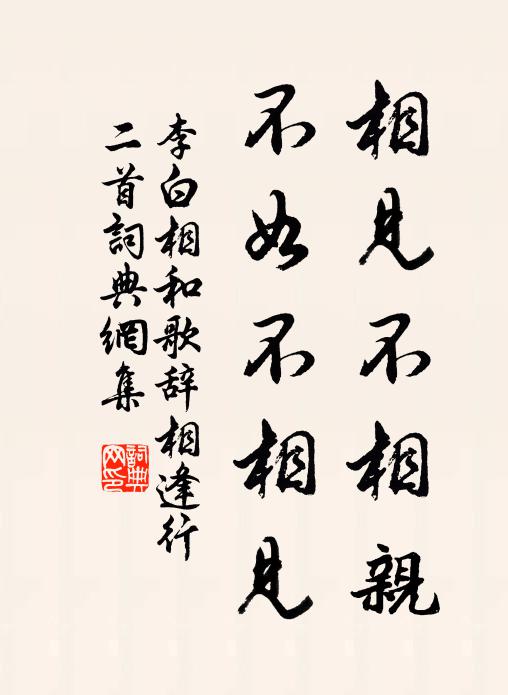 相見不相親
不如不相見
李白相和歌辞相逢行
二首詞典網集
詞典
网印